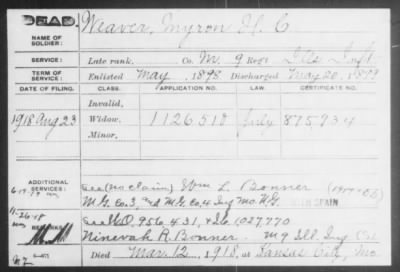 DEAD.
NAME OF SOLDIER: Weaver, Myron H. C
SERVICE: Late rank, Co. M. 9 Reg't Ills Inft
TERM OF SERVICE: Enlisted May , 1898. Discharged May 20, 1899
DATE OF FILING. CLASS. APPLICATION NO. LAW. CERTIFICATE NO.
Invalid,
1918 Aug 23 Widow, 1126510 July 875,734
Minor,
ADDITIONAL SERVICES: See (no claim) Wm L. Bonner
M.G. Co. 3, and M.G. Co. 4 Inf Mo. N.G. WITH SPAIN
11-26-18
REMARKS See W.O. 956.431, + Io. 1027.770
Ninevah R. Bonner. M 9 Ill. Inf
Died Mar. 12, 1918, at Kansas City, Mo.